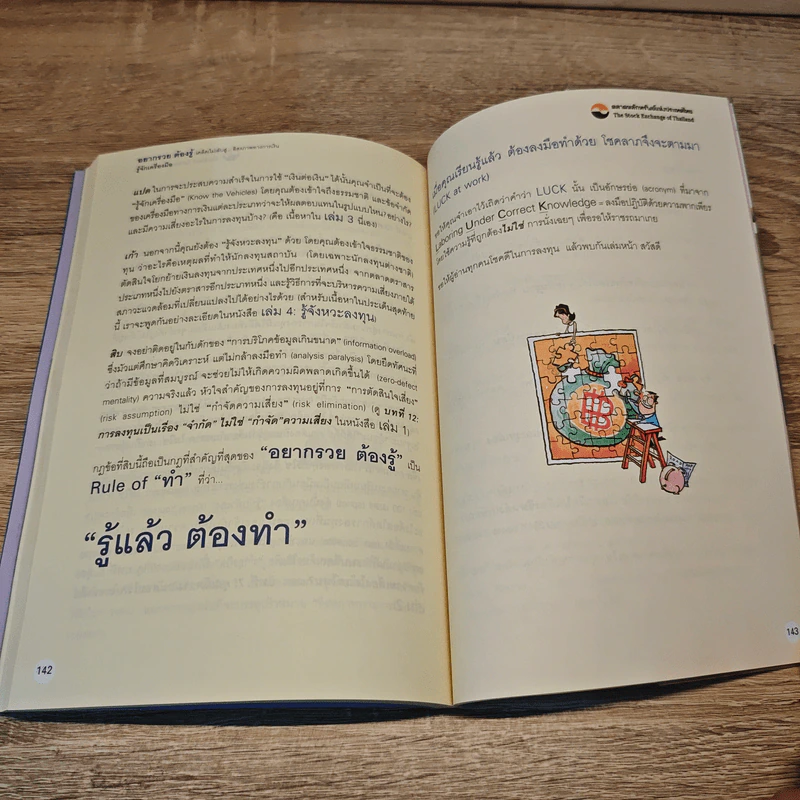 อยากรวย ต้องรู้ เคล็ดไม่ลับสู่...อิสรภาพทางการเงิน
รู้จักเครื่องมือ
แปด ในการจะประสบความสำเร็จในการใช้ "เงินต่อเงิน" ได้นั้นคุณจำเป็นที่จะต้อง
"รู้จักเครื่องมือ" (Know the Vehicles) โดยคุณต้องเข้าใจถึงธรรมชาติ และข้อจำกัด
ของเครื่องมือทางการเงินแต่ละประเภทว่าจะให้ผลตอบแทนในรูปแบบไหน? อย่างไร?
และมีความเสี่ยงอะไรในการลงทุนบ้าง? (คือ เนื้อหาใน เล่ม 3 นี่เอง)
เก้า นอกจากนี้คุณยังต้อง "รู้จังหวะลงทุน" ด้วย โดยคุณต้องเข้าใจธรรมชาติของ
ทุน ว่าอะไรคือเหตุผลที่ทำให้นักลงทุนสถาบัน (โดยเฉพาะนักลงทุนต่างชาติ)
ตัดสินใจโยกย้ายเงินลงทุนจากประเทศหนึ่งไปอีกประเทศหนึ่ง จากตลาดตราสาร
ประเภทหนึ่งไปยังตราสารอีกประเภทหนึ่ง และรู้วิธีการที่จะบริหารความเสี่ยงภายใต้
สภาวะแวดล้อมที่เปลี่ยนแปลงไปได้อย่างไรด้วย (สำหรับเนื้อหาในประเด็นสุดท้าย
นี้ เราจะพูดกันอย่างละเอียดในหนังสือ เล่ม 4: รู้จังหวะลงทุน)
สิบ จงอย่าติดอยู่ในกับดักของ "การบริโภคข้อมูลเกินขนาด" (information overload)
ซึ่งมัวแต่ศึกษาคิดวิเคราะห์ แต่ไม่กล้าลงมือทำ (analysis paralysis) โดยยึดทัศนะที่
ว่าถ้ามีข้อมูลที่สมบูรณ์ จะช่วยไม่ให้เกิดความผิดพลาดเกิดขึ้นได้ (zero-defect
mentality) ความจริงแล้ว หัวใจสำคัญของการลงทุนอยู่ที่การ "การตัดสินใจเสี่ยง"
(risk assumption) ไม่ใช่ "กำจัดความเสี่ยง" (risk elimination) (ดู บทที่ 12:
การลงทุนเป็นเรื่อง "จำกัด" ไม่ใช่ "กำจัด"ความเสี่ยง ในหนังสือ เล่ม 1)
กฎข้อที่สิบนี้ถือเป็นกฎที่สำคัญที่สุดของ "อยากรวย ต้องรู้" เป็น
Rule of "ทำ" ที่ว่า...
"รู้แล้ว ต้องทำ"
142
ตลาดหลักทรัพย์แห่งประเทศไทย
The Stock Exchange of Thailand
เมื่อคุณเรียนรู้แล้ว ต้องลงมือทำด้วย โชคลาภจึงจะตามมา
(LUCK at work)
ขอให้คุณจำเอาไว้เถิดว่าคำว่า LUCK นั้น เป็นอักษรย่อ (acronym) ที่มาจาก
Laboring Under Correct Knowledge = ลงมือปฏิบัติด้วยความพากเพียร
โดยใช้ความรู้ที่ถูกต้องไม่ใช่ การนั่งเฉยๆ เพื่อรอให้ราชรถมาเกย
ขอให้ผู้อ่านทุกคนโชคดีในการลงทุน แล้วพบกันเล่มหน้า สวัสดี
143